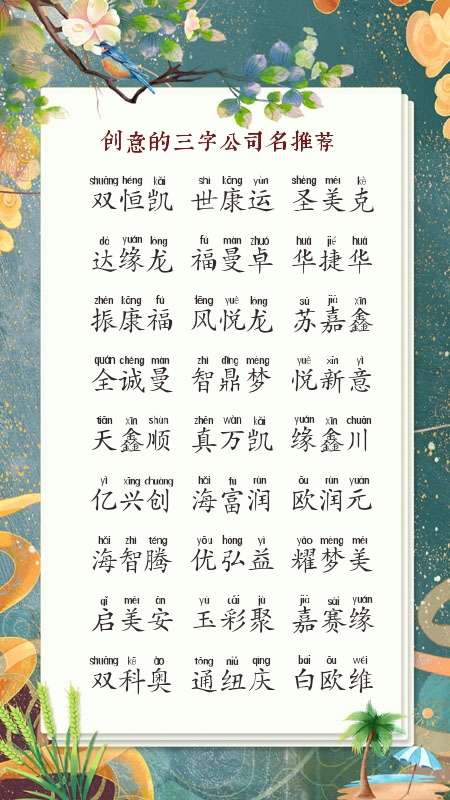 创意的三字公司名推荐
shuāng héng kǎi shì kāng yùn shèng měi kè
双恒凯 世康运 圣美克
dá yuán lóng fú màn zhuó huá jié huá
达缘龙 福曼卓 华捷华
zhèn kāng fú fēng yuè lóng sū jiā xīn
振康福 风悦龙 苏嘉鑫
quán chéng màn zhì dǐng mèng yuè xīn yì
全诚曼 智鼎梦 悦新意
tiān xīn shùn zhēn wàn kǎi yuán xīn chuān
天鑫顺 真万凯 缘鑫川
yì xīng chuàng hǎi fù rùn ōu rùn yuán
亿兴创 海富润 欧润元
hǎi zhì téng yōu hóng yì yào mèng měi
海智腾 优弘益 耀梦美
qǐ měi ān yù cǎi jù jiā sài yuán
启美安 玉彩聚 嘉赛缘
shuāng kē ào tōng niǔ qìng bái ōu wéi
双科奥 通纽庆 白欧维